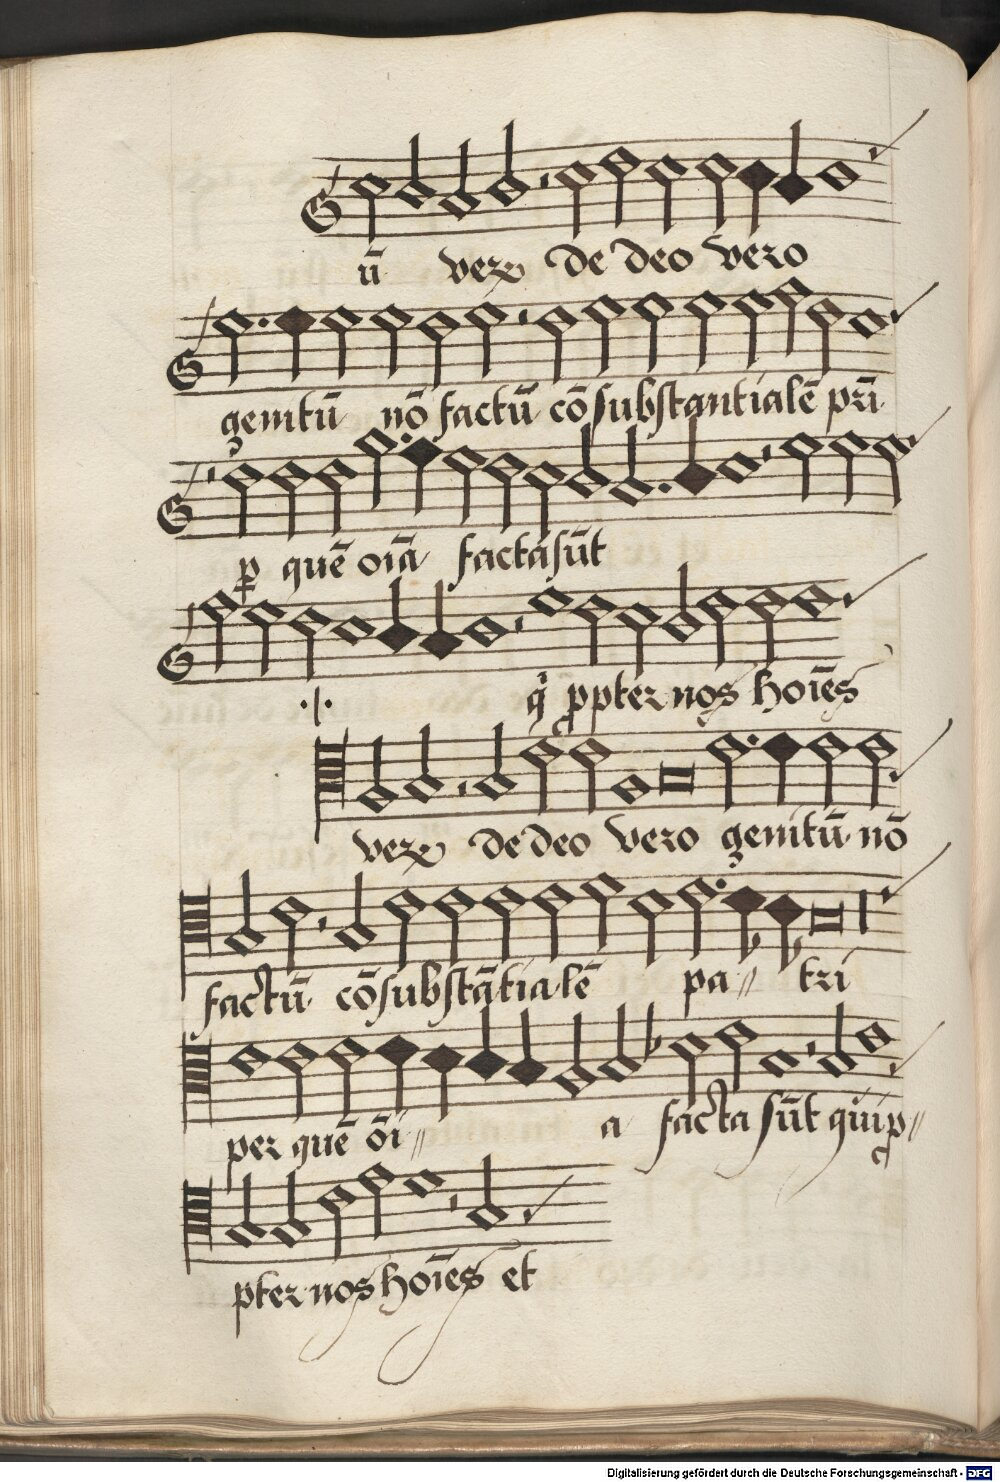 ū veꝝ de deo vero
genitū nō factū cōsubstantialē pr̄i
ꝑ quē oīa factasūt
·/· q̇ ꝓpter nos hoīes
veꝝ de deo vero genitū nō
factū cōsubstātialē pa〃 tri
per quē ōi〃 a facta sūt quiꝓ〃
pter nos hoīes et
Digitalisierung gefördert durch die Deutsche Forschungsgemeinschaft - DFG